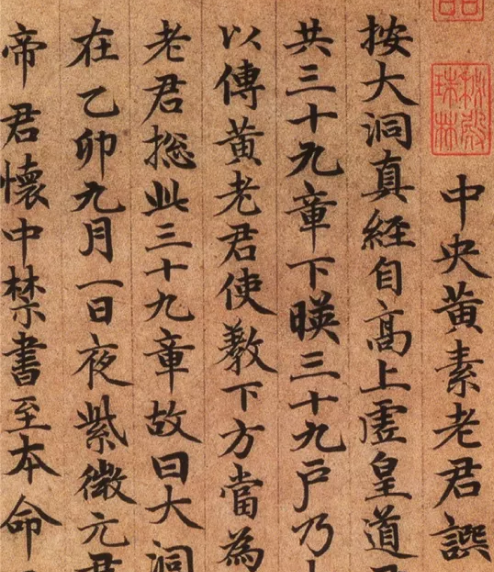 秘殿珠林
中央黄素老君譔
按大洞真經自髙上虛皇道
共三十九章下暎三十九戶乃
以傳黄老君使教下方當為
老君揔此三十九章故曰大洞
在乙卯九月一日夜紫微元君
帝君懷中禁書至本命